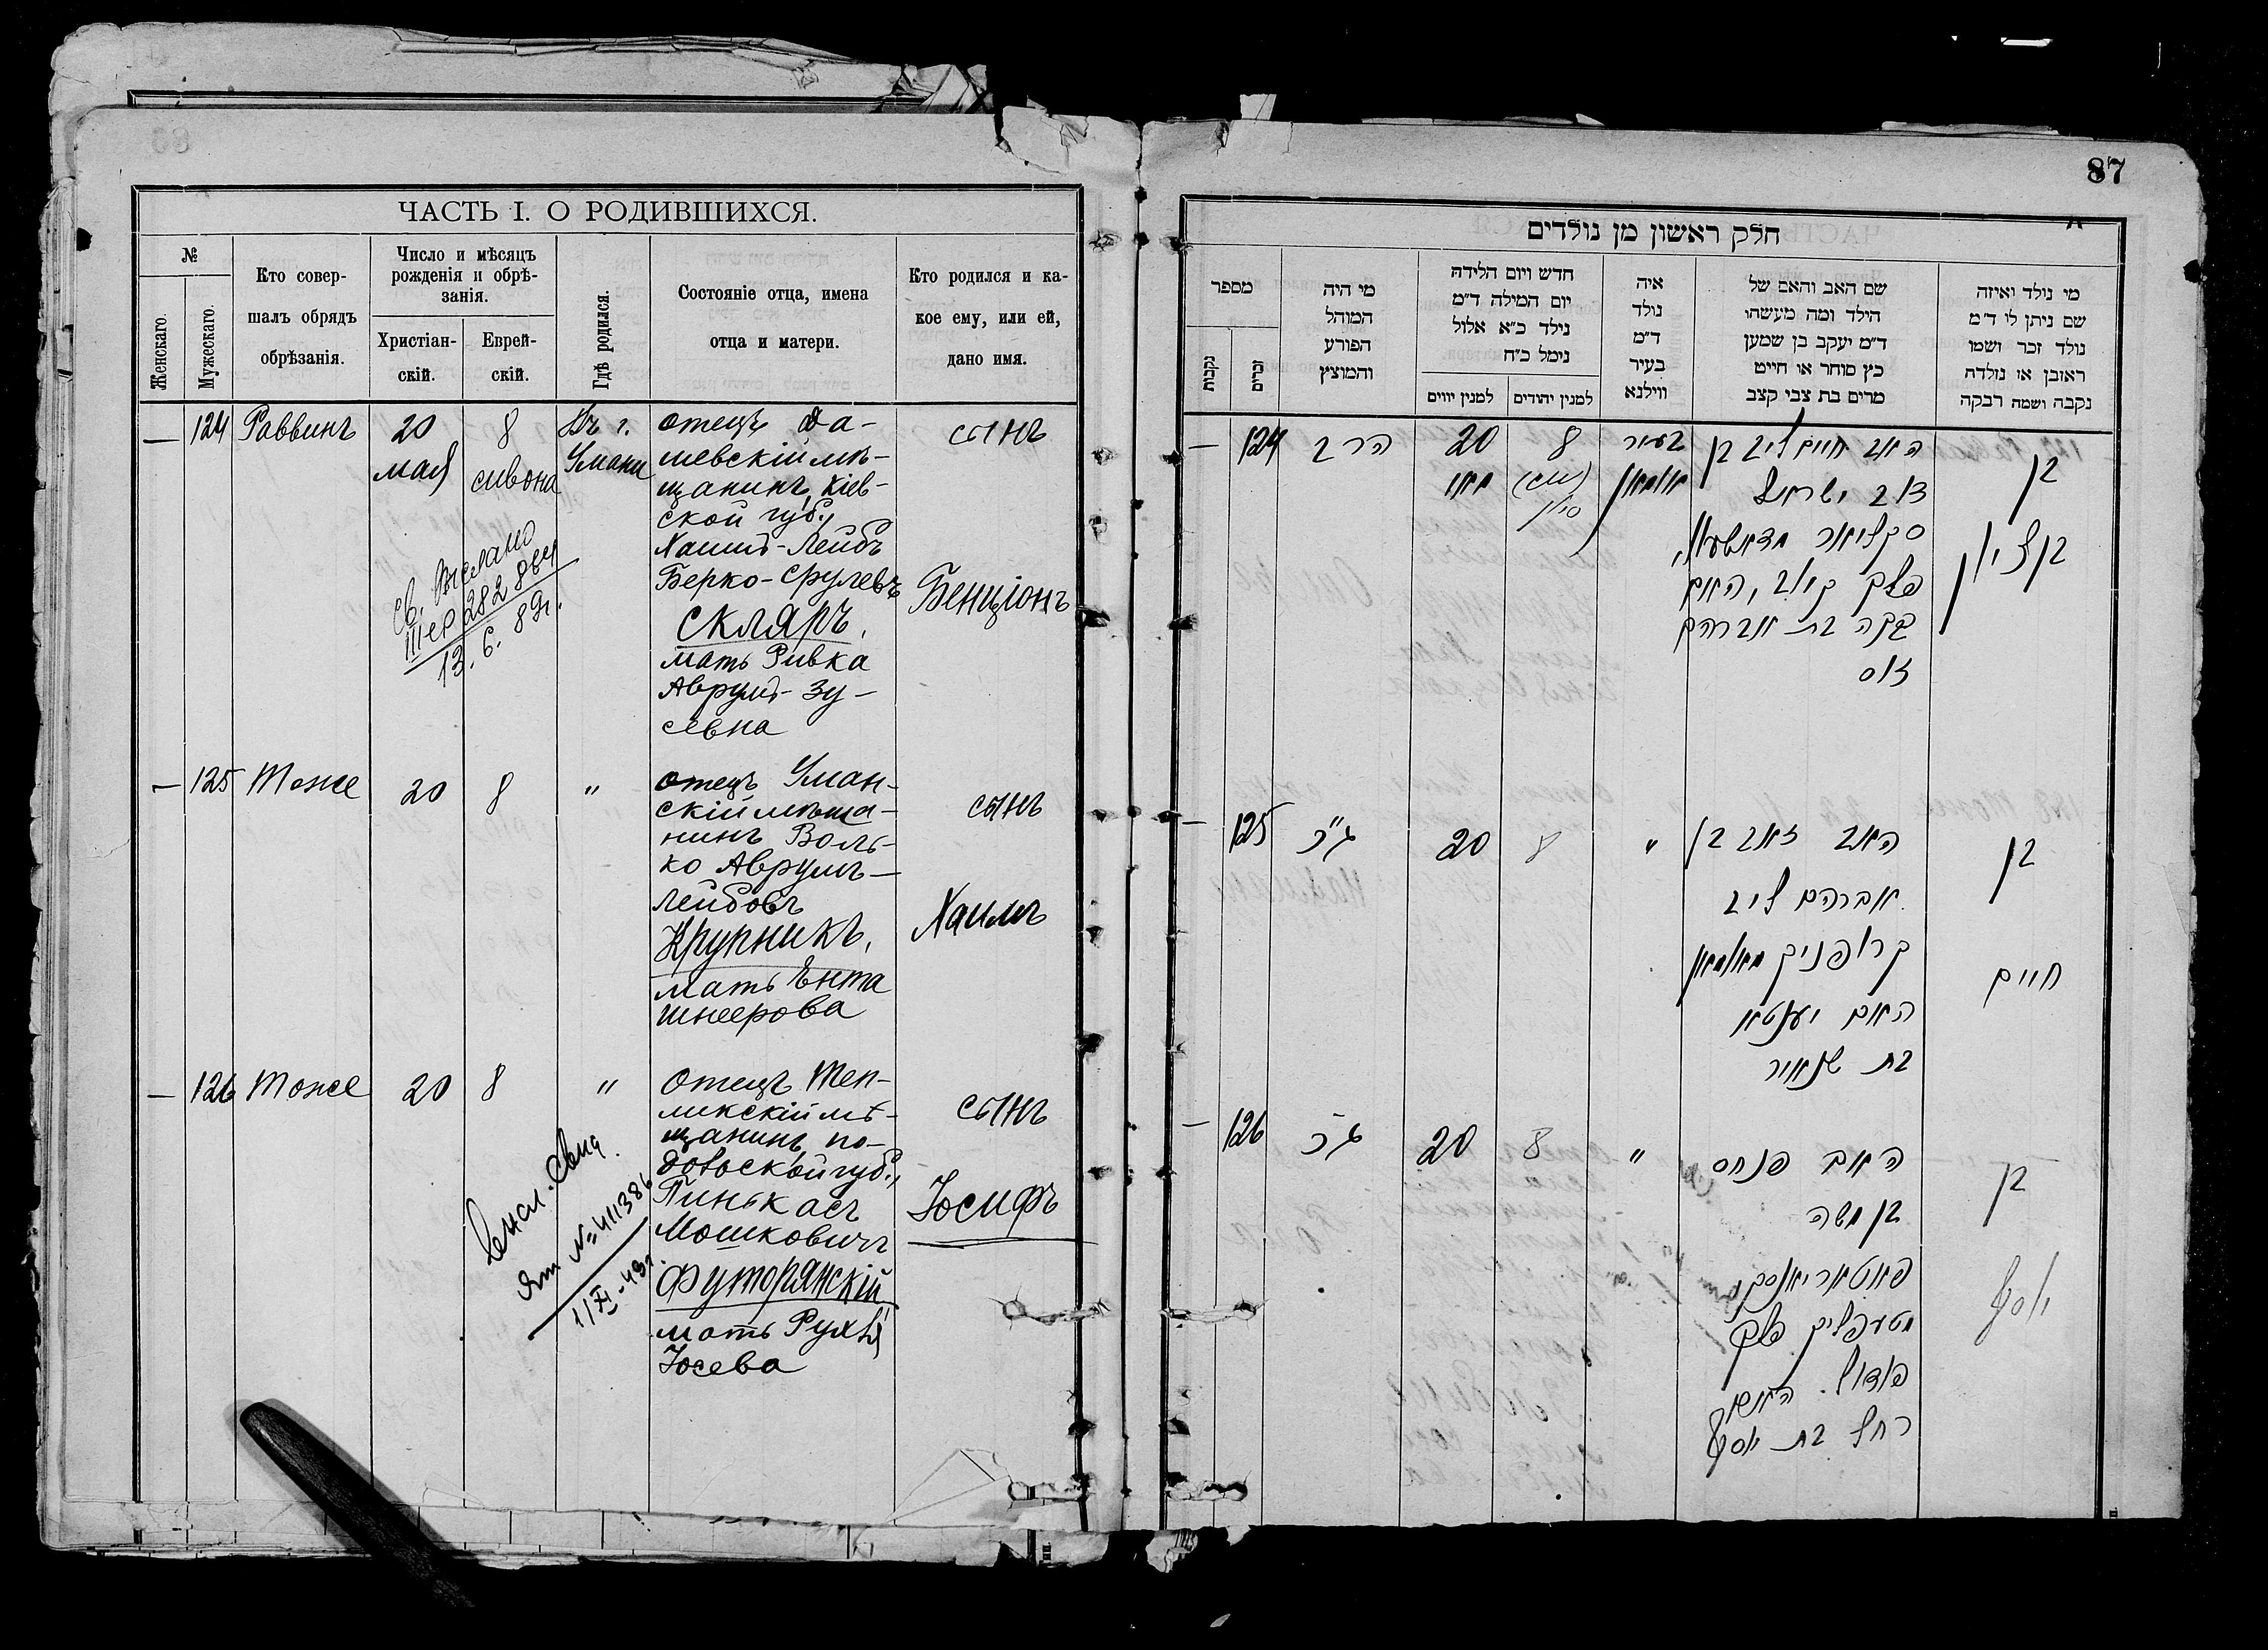 87
ЧАСТЬ I. О РОДИВШИХСЯ.
№
Женскаго.
Мужескаго.
Кто совер-
шалъ обрядъ
обрѣзанія.
Число и мѣсяцъ
рожденія и обрѣ-
занія.
Христіан-
скій.
Еврей-
скій.
Гдѣ родился.
Состояніе отца, имена
отца и матери.
Кто родился и ка-
кое ему, или ей,
дано имя.
— 124 Раввинъ
20
мая
8
сивона
Въ г.
Умани
отецъ Да-
шевскій мѣ-
щанинъ, Кіев-
ской губ.,
Хаимъ-Лейбъ
Берко-Срулевъ
Скляръ,
мать Ривка
Аврумъ-Зу-
севна
сынъ
Бенціонъ
св.
282864
13.6.
— 125 Тоже 20 8 "
отецъ Уман-
скій мѣща-
нинъ Воль-
ко Аврумъ-
Лейбовъ
Крупникъ,
мать Ента
Шнеерова
сынъ
Хаимъ
— 126 Тоже 20 8 "
отецъ Теп-
ликскій мѣ-
щанинъ, по-
дольской губ.,
Пинькасъ
Мошковичъ
Футорянскій
мать Рухля
Іосева
сынъ
Іосифъ
№ 411386
11/XI-49г.
חלק ראשון מן נולדים
מספר
נקבות
זכרים
מי היה
המוהל
הפורע
והמוצץ
חדש ויום הלידה
יום המילה ד״מ
נילד כ״א אלול
נימל כ״ח
למנין יווים
למנין יהודים
איה
נולד
ד״מ
בעיר
ווילנא
שם האב והאם של
הילד ומה מעשהו
ד״מ יעקב בן שמען
כץ סוחר או חייט
מרים בת צבי קצב
מי נולד ואיזה
שם ניתן לו ד״מ
נולד זכר ושמו
ראובן או נולדה
נקבה ושמה רבקה
— 124 הרב
20
מאי
8
סיון
בעיר
אומאן
האב חיים ליב בן
דוב ישראל
סקליאר מדאשעוו,
פלך קיוב, האם
רבקה בת אברהם
זוס
בן
בן ציון
— 125 ג״כ 20 8 "
האב זאב בן
אברהם ליב
קרופניק מאומאן
האם יענטא
בת שנאור
בן
חיים
— 126 ג״כ 20 8 "
האב פנחס
בן משה
פוטאריאנסקי
מטעפליק פלך
פאדאל. האם
רחל בת יוסף
בן
יוסף